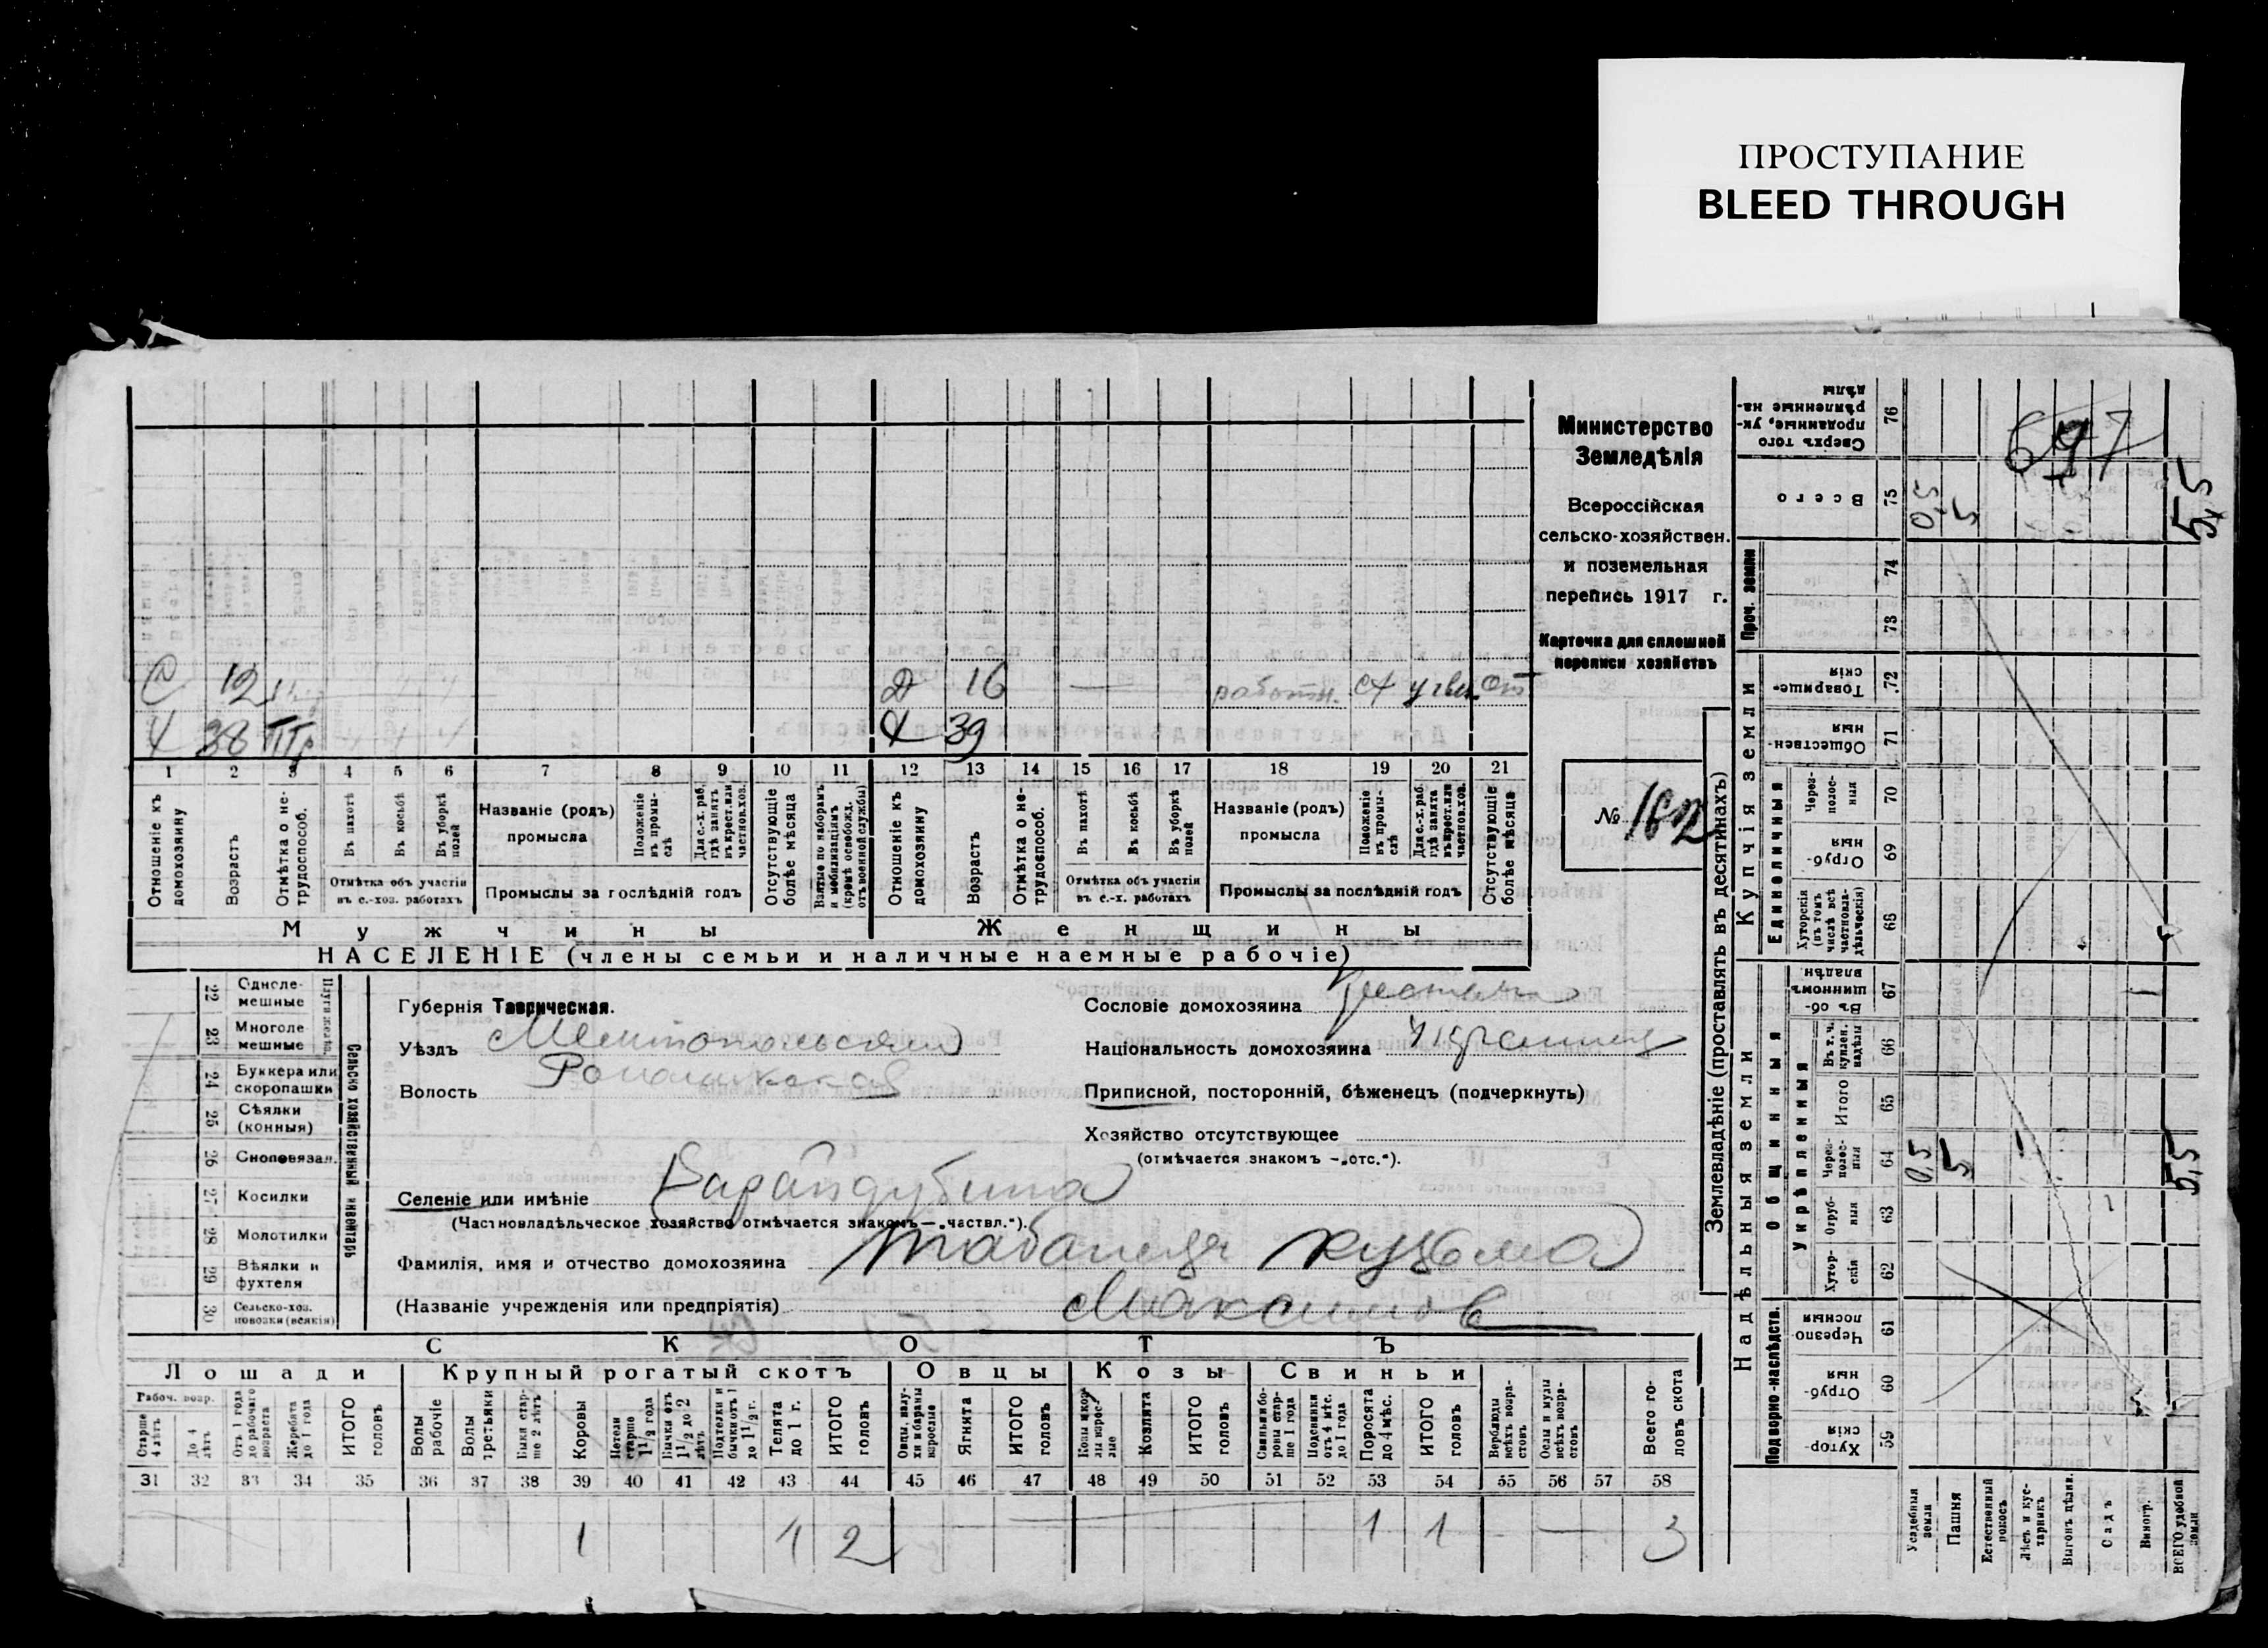 ПРОСТУПАНИЕ
BLEED THROUGH
Министерство
Земледѣлія
Всероссійская
сельско-хозяйствен.
и поземельная
перепись 1917 г.
Карточка для сплошной
переписи хозяйствъ
№ 162
С 12
Д 16 — работн.
Х 38
Х 39
1 2 3 4 5 6 7 8 9 10 11 12 13 14 15 16 17 18 19 20 21
Отношеніе къ домохозяину
Возрастъ
Отмѣтка о нетрудоспособ.
Въ пахотѣ
Въ косьбѣ
Въ уборкѣ полей
Отмѣтка объ участіи въ с.-хоз. работахъ
Названіе (родъ) промысла
Положеніе въ промыслѣ
Для с.-х. раб. гдѣ занятъ въ крест. или частнов. хоз.
Промыслы за послѣдній годъ
Отсутствующіе болѣе мѣсяца
Взятые по наборамъ и мобилизаціямъ (кромѣ освобожд. отъ военной службы)
Отношеніе къ домохозяину
Возрастъ
Отмѣтка о нетрудоспособ.
Въ пахотѣ
Въ косьбѣ
Въ уборкѣ полей
Отмѣтка объ участіи въ с.-х. работахъ
Названіе (родъ) промысла
Положеніе въ промыслѣ
Для с.-х. раб. гдѣ занята въ крест. или частнов. хоз.
Промыслы за послѣдній годъ
Отсутствующіе болѣе мѣсяца
Мужчины
Женщины
НАСЕЛЕНІЕ (члены семьи и наличные наемные рабочіе)
Сельско хозяйственный инвентарь
22 Однолемешные
23 Многолемешные
24 Буккера или скоропашки
25 Сѣялки (конныя)
26 Сноповязал.
27 Косилки
28 Молотилки
29 Вѣялки и фухтеля
30 Сельско-хоз. повозки (всякія)
Губернія Таврическая.
Уѣздъ Мелитопольскій
Волость
Сословіе домохозяина
Національность домохозяина Украинец
Приписной, посторонній, бѣженецъ (подчеркнуть)
Хозяйство отсутствующее
(отмѣчается знакомъ — „отс.“).
Селеніе или имѣніе
(Частновладѣльческое хозяйство отмѣчается знакомъ — „частвл.“).
Фамилія, имя и отчество домохозяина Табанеця Кузьма
(Названіе учрежденія или предпріятія) Максимов
СКОТЪ
Лошади Крупный рогатый скотъ Овцы Козы Свиньи
Рабоч. возр.
Старше 4 лѣтъ
До 4 лѣтъ
Отъ 1 года до рабочаго возраста
Жеребята до 1 года
ИТОГО головъ
Волы рабочіе
Волы третьяки
Быки старше 2 лѣтъ
Коровы
Нетели старше 1 1/2 года
Бычки отъ 1 1/2 до 2 лѣтъ
Подтелки и бычки отъ 1 до 1 1/2 г.
Телята до 1 г.
ИТОГО головъ
Овцы, валухи и бараны взрослые
Ягнята
ИТОГО головъ
Козы и козлы взрослые
Козлята
ИТОГО головъ
Свиньи боровы старше 1 года
Подсвинки отъ 4 мѣс. до 1 года
Поросята до 4 мѣс.
ИТОГО головъ
Верблюды всѣхъ возрастовъ
Ослы и мулы всѣхъ возрастовъ
Всего головъ скота
31 32 33 34 35 36 37 38 39 40 41 42 43 44 45 46 47 48 49 50 51 52 53 54 55 56 57 58
1 1 2 — — 1 1 — 3
Землевладѣніе (проставлять въ десятинахъ)
Надѣльныя земли
Купчія земли
Проч. земли
Подворно-наслѣдств.
Общинныя
Укрѣпленныя
Единоличныя
76 Сверхъ того проданные, укрѣпленные надѣлы
697
75 Всего 0,5 5 5,5
74
73
72 Товарищескія
71 Общественныя
70 Черезполосныя
69 Отрубныя
68 Хуторскія (въ томъ числѣ всѣ частновладѣльческія)
67 Въ общинномъ владѣн.
66 Въ т. ч. куплен. надѣлы
65 Итого
64 Черезполосныя 0,5 5 5,5
63 Отрубныя
62 Хуторскія
61 Черезполосныя
60 Отрубныя
59 Хуторскія
Усадебныя земли
Пашня
Естественный покосъ
Лѣсъ и кустарникъ
Выгонъ цѣлин.
Садъ
Виногр.
ВСЕГО удобной земли